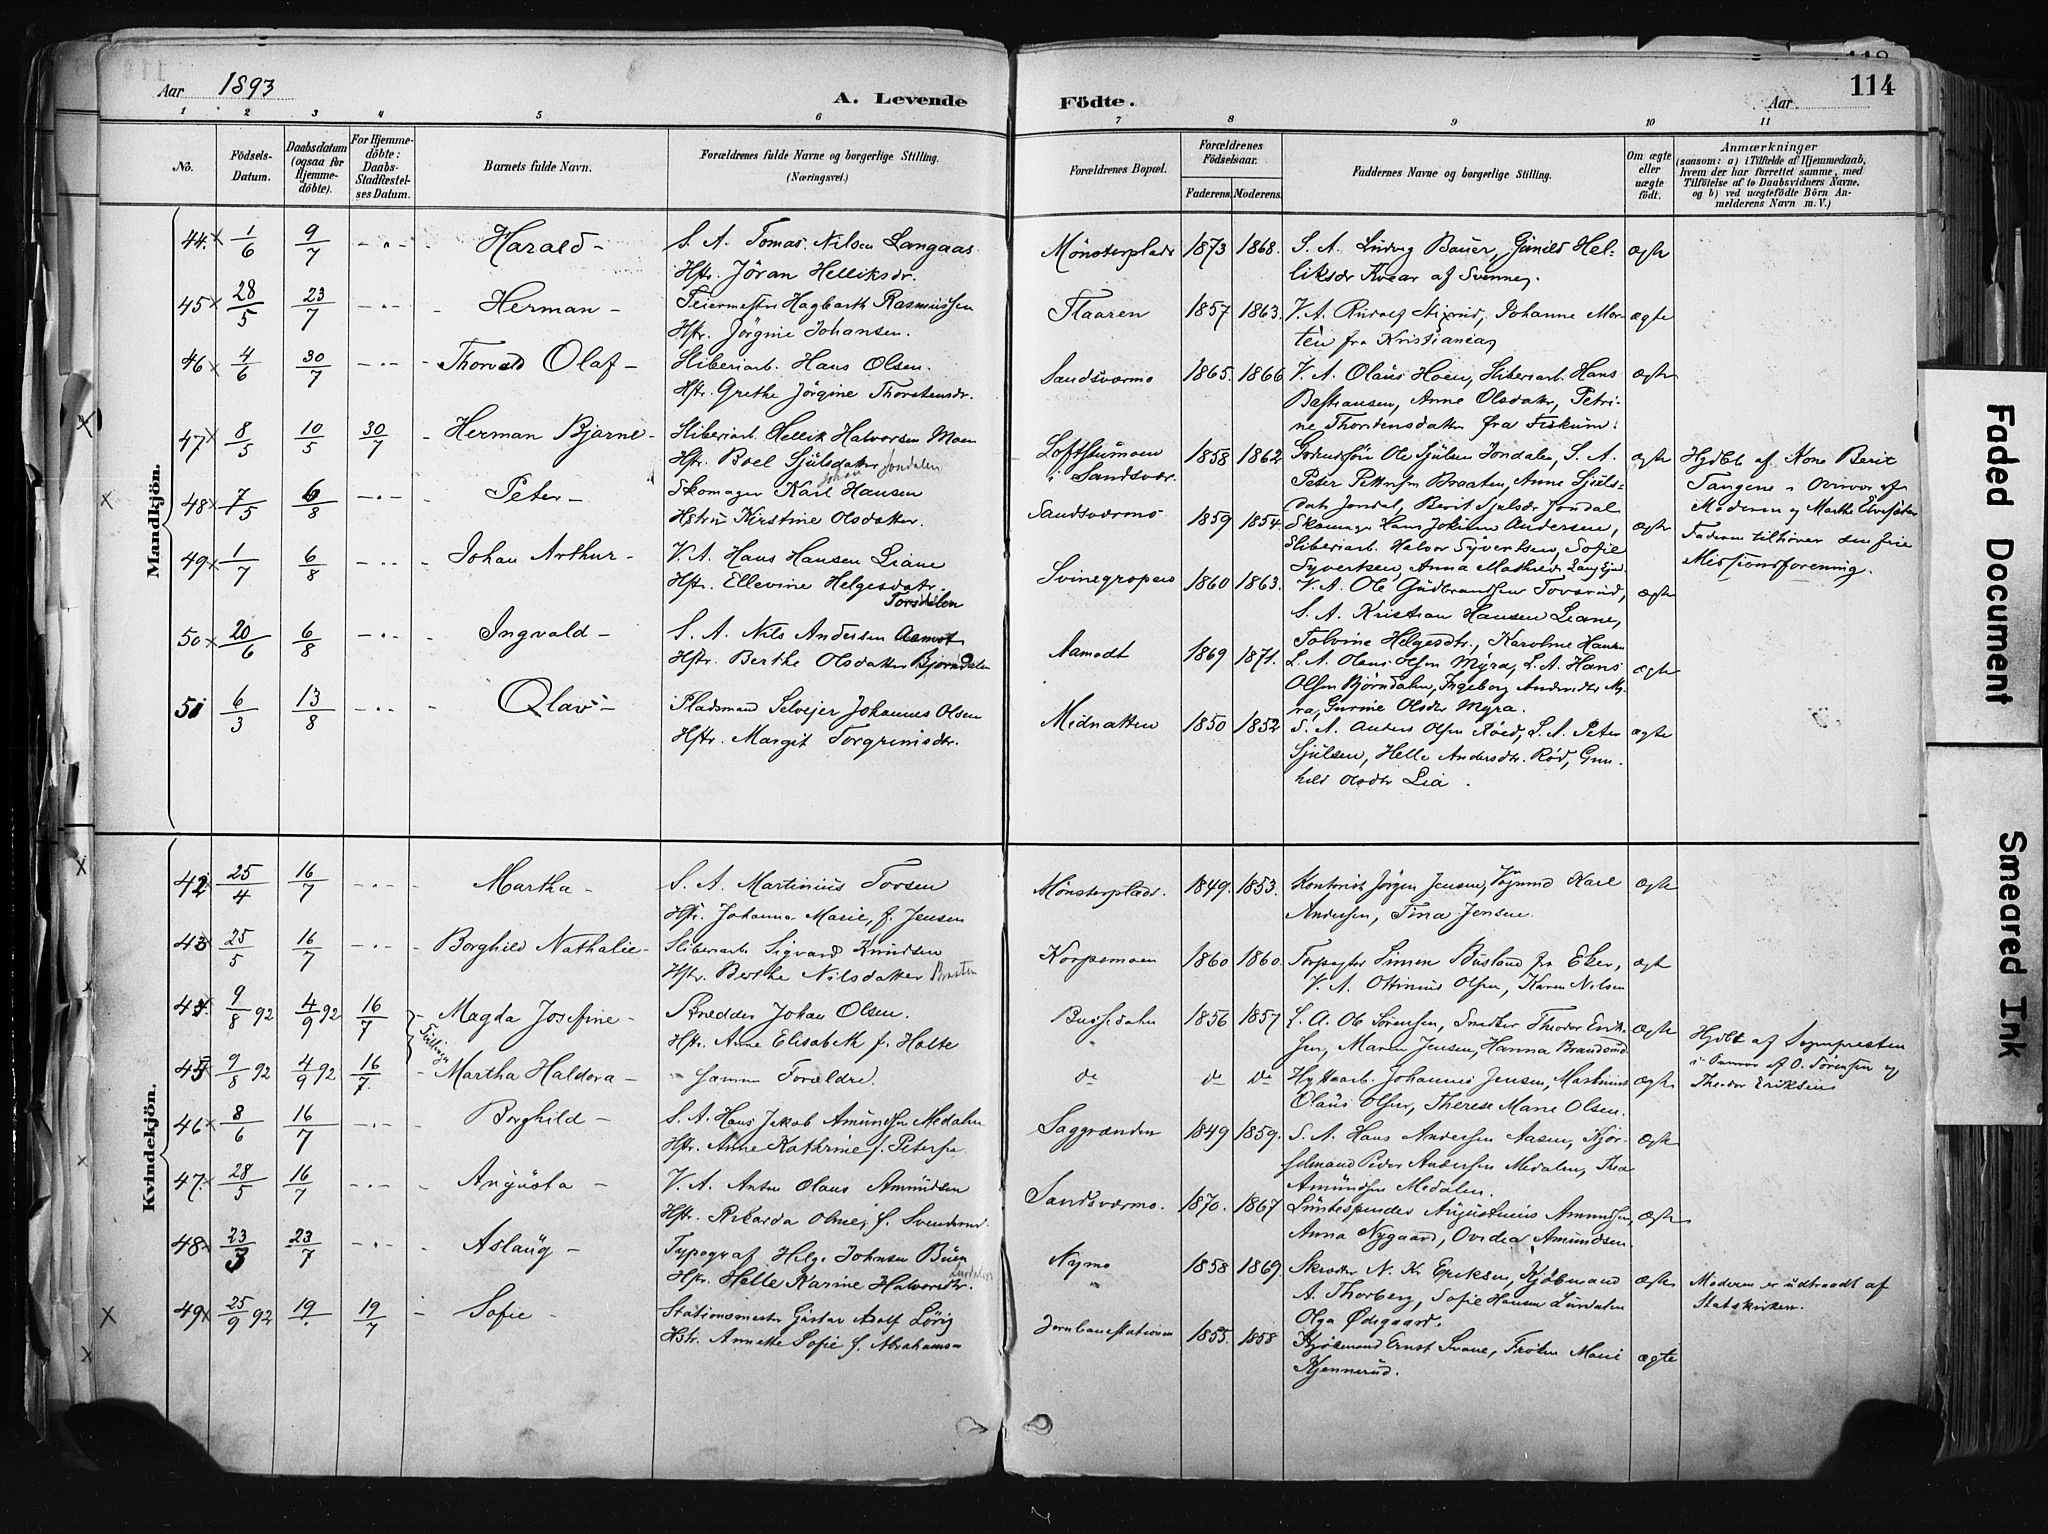 Aar 1893
A. Levende
Födte.
Aar
114
1 2 3 4 5 6 7 8 9 10 11
No.
Födsels-Datum.
Daabsdatum (ogsaa for Hjemmedöbte).
For Hjemmedöbte: Daabs-Stadfæstelses Datum.
Barnets fulde Navn.
Forældrenes fulde Navne og borgerlige Stilling. (Næringsvei.)
Forældrenes Bopæl.
Forældrenes Födselsaar.
Faderens. Moderens.
Faddernes Navne og borgerlige Stilling.
Om ægte eller uægte födt.
Anmærkninger
(saasom: a) i Tilfælde af Hjemmedaab, hvem der har forrettet samme, med Tilföielse af to Daabsvidners Navne, og b) ved uægtefödte Börn Anmelderens Navn m. V.)
Mandkjön.
44. 1/6 9/7 Harald - S. A. Tomas Nilsen Langaas
Hstr. Jöran Helliksdr.
Mönsterplads 1873 1868. S. A. Ludvig Bauer, Gunild Hel-
liksdr Kvear af Svenne. ægte
45 28/5 23/7 Herman - Feiermester Hagbarth Rasmussen
Hstr. Jörgine Johansen.
Flaaren 1857 1863. V. A. Rudolf , Johanne Mor-
ten fra Kristiania ægte
46 4/6 30/7 Thorvald Olaf - Sliberiarb. Hans Olsen.
Hstr. Grethe Jörgine Thorstensdr.
Sandsværmo 1865. 1866 V. A. Olaus Hoen, Sliberiarb. Hans
Bastiansen, Anne Olsdatter, Petri-
ne Thorstensdatter fra Fiskum. ægte
47 8/5 10/5 30/7 Herman Bjarne - Sliberiarb. Hellik Halvorsen Moen
Hstr. Boel Sjulsdatter Jondalen
i Sandsvær. 1858 1862 Ole Sjulsen Jondalen, S. A.
Peter Pettersen Braaten, Anne Sjuls-
datr Jondal, Berit Sjulsdr Jondal ægte
Hjdbt. af Kone Berit
Tangene i Overvær af
Moderen og Marthe
Faderen tilhörer den frie
Missionsforening.
48 7/5 6/8 Peter - Skomager Karl Johan Hansen
Hstru Kirstine Olsdatter.
Sandsværmo 1859 1854. Skomager Hans Jokum Andersen,
Sliberiarb. Halvor Syvertsen, Sofie
Syvertsen, Anna Mathilde ægte
49 1/7 6/8 Johan Arthur - V. A. Hans Hansen Liane
Hstr. Ellevine Helgesdatr. Torsdalen
Svinegropen 1860 1863. V. A. Ole Gudbrandsen Tovsrud,
S. A. Kristian Hansen Liane,
Tolvine Helgesdtr., Karoline Hansen ægte
50 20/6 6/8 Ingvald - S. A. Nils Andersen Aamot
Hstr. Berthe Olsdatter Björndalen
Aamodt 1869 1871. L. A. Olaus Olsen Myra, L. A. Hans
Olsen Björndalen, Ingeborg Andersdtr My-
ra, Gurine Olsdtr Myra. ægte
51 6/3 13/8 Olav - Pladsmand Selveier Johannes Olsen
Hstr. Margit Torgrimsdtr.
Midnatten 1850 1852 S. A. Anders Olsen Röed, L. A. Peter
Sjulsen, Helle Andersdtr. Röd, Gun-
hild Olsdtr Lia. ægte
Kvindekjön.
42 25/4 16/7 Martha - S. A. Martinius Torsen
Hstr. Johanne Marie, f. Jensen
Mönsterplads. 1849. 1853. Kontorist Jörgen Jensen, Karl
Andersen, Tina Jensen. ægte
43 25/5 16/7 Borghild Nathalie - Sliberiarb Sigvard Knudsen
Hstr. Berthe Nilsdatter Braaten
Korpemoen 1860 1860. Simen Busland fra Eker,
V. A. Ottinius Olsen, Karen Nilsen ægte
44 9/8 92 4/9 92 16/7 Magda Josefine - Snedker Johan Olsen.
Hstr. Anne Elisabeth f. Holte
Tvillinger
Bussedalen 1856 1857 L. A. Ole Sörensen, Snedker Theodor Erik-
sen, Maren Jensen, Hanna Brandsrud ægte
Hjdbt af Sognepresten
i Overvær af O. Sörensen og
Theodor Eriksens
45 9/8 92 4/9 92 16/7 Martha Haldora - samme Forældre.
do do do Hyttearb. Johannes Jensen, Martinius
Olaus Olsen, Therese Marie Olsen. ægte
46 8/6 16/7 Borghild - S. A. Hans Jakob Amundsen Medalen
Hstr. Anne Kathrine f. Petersen
Saggrenden 1849 1859. S. A. Hans Andersen Aasen, Kjör-
selmand Peder Andersen Medalen, Thea
Amundsen Medalen. ægte
47. 28/5 16/7 Augusta - V. A. Anton Olaus Amundsen
Hstr. Rikarda Oline, f. Svendsrud.
Sandsværmo. 1870. 1867 Augustinius Amundsen,
Anna Nygaard, Ovidia Amundsen. ægte
48 23/3 23/7 Aslaug - Typograf Helge Johnsen Buen
Hstr. Helle Karine Halvorsdtr. Lurdalen
Nymo 1858 1869. Skrædder N. Kr Eriksen, Kjöbmand
A. Thorberg, Sofie Hansen Lurdalen
Olga Ödegaard. ægte
Moderen er udtraadt af
Statskirken.
49 25/9 92 19 19/7 Sofie - Stationsmester Gustav Adolf Lörig
Hstr. Annette Sofie f. Abrahamsen
Jernbanestationen 1855. 1858 Kjöbmand Ernst Svane, Fröken Marie
Kjennerud. ægte
Faded Document
Smeared Ink